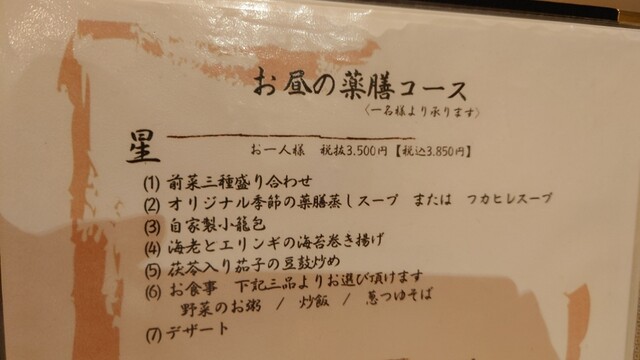 お昼の薬膳コース
〈一名様より承ります〉
星
お一人様 税抜3.500円【税込3.850円】
(1) 前菜三種盛り合わせ
(2) オリジナル季節の薬膳蒸しスープ または フカヒレスープ
(3) 自家製小籠包
(4) 海老とエリンギの海苔巻き揚げ
(5) 茯苓入り茄子の豆鼓炒め
(6) お食事 下記三品よりお選び頂けます
野菜のお粥 / 炒飯 / 葱つゆそば
(7) デザート